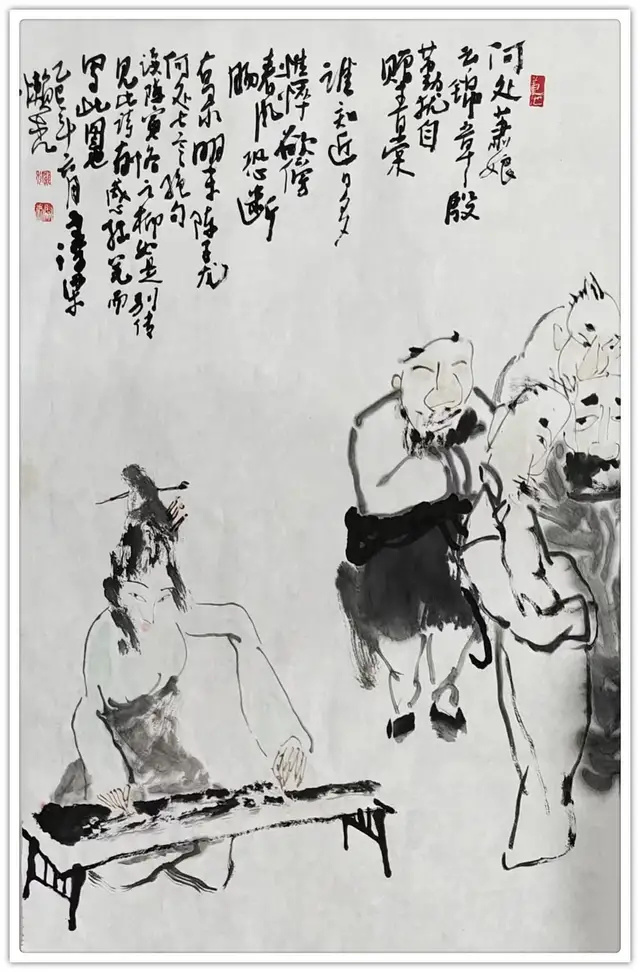 何处萧娘
云锦章殷
勤犹自
赠青棠
谁知近日多
憔悴欲傍
春风恐断
肠
右录明末陈子龙
何处七言绝句
读陈寅恪之柳如是别传
见此诗有感而
写此图也
乙巳年六月